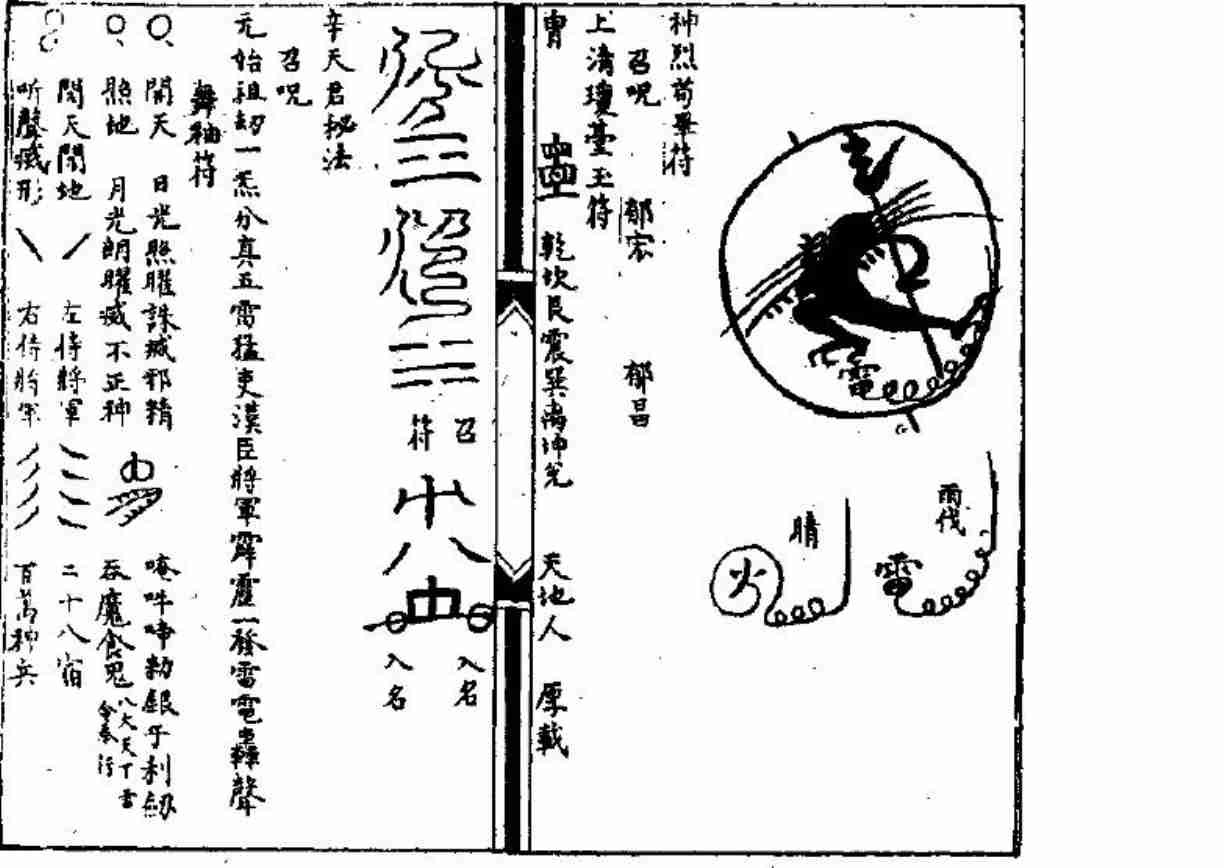 電
雨伐
雷
晴
火
神烈苟畢符
召咒 郁宗 郁昌
上清瓊臺玉符
乾坎艮震巽离坤兌 天地人 厚載
召
符
入名
入名
辛天君秘法
召咒
元始祖劫一炁分真五雷猛吏漢臣將軍霹靂一發雷電轟聲
舞袖符
開天 日光照曜誅滅邪精 唵吽啼勅銀牙利劍
照地 月光朗曜滅不正神 吞魔食鬼八大天丁雷令奉行
閉天閉地 左侍將軍 二十八宿
听聲滅形 右侍將軍 百萬神兵